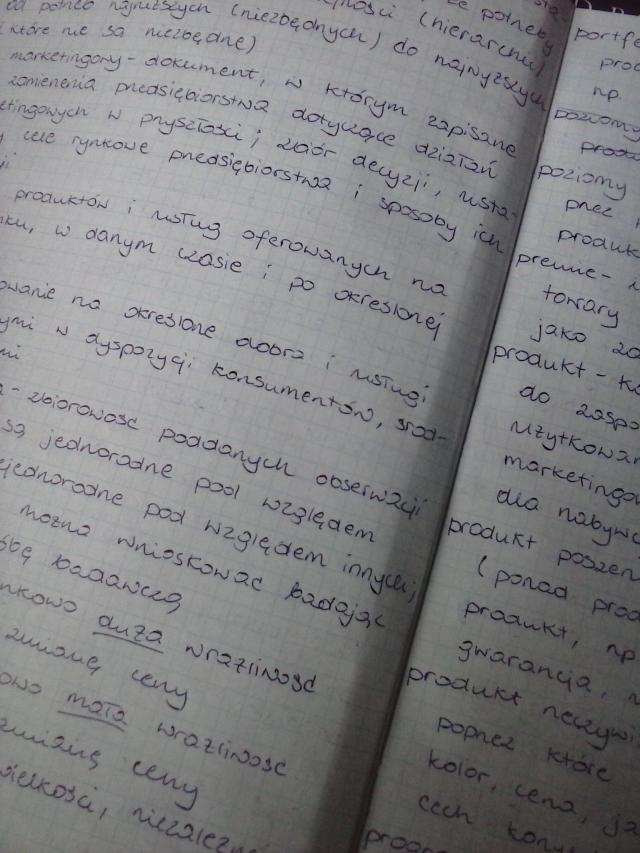 że potrzeby
od potrzeb najniższych (niezbędnych) do najwyższych
(które nie są niezbędne)
marketingowy - dokument, w którym zapisane
zamierzenia przedsiębiorstwa dotyczące działań
etingowych w przyszłości; zbiór decyzji, usta-
cele rynkowe przedsiębiorstwa i sposoby ich
ji
produktów i usług oferowanych na
nku, w danym czasie i po określonej
owanie na określone dobra i usługi
ymi w dyspozycji konsumentów, środ-
mi
a - zbiorowość poddanych obserwacji
są jednorodne pod względem
ejednorodne pod względem innych;
można wnioskować badając
óbę badawczą
nkowo duża wrażliwość
zmianę ceny
owo mała wrażliwość
zmianę ceny
wielkości, niezależn
portfe
prod
np.
poziomy
produ
poziomy
przez
produk
premie -
towary
jako za
produkt - ko
do zaspo
użytkowan
marketingo
dla nabywc
produkt poszerz
(ponad prod
produkt, np
gwarancja,
produkt rzeczywi
poprzez które
kolor, cena, ja
cech